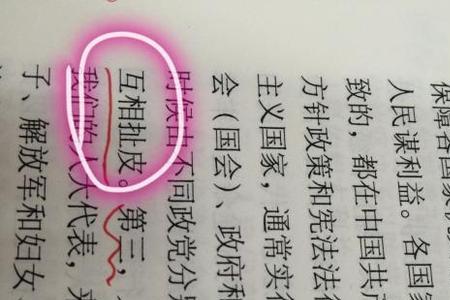 保障各国家
人民谋利益。各国家
致的，都在中国共产
方针政策和宪法法律
主义国家，通常实行
会（国会）、政府和
时候由不同政党分别
互相扯皮。第三，
我们的人大代表，来
子、解放军和妇女